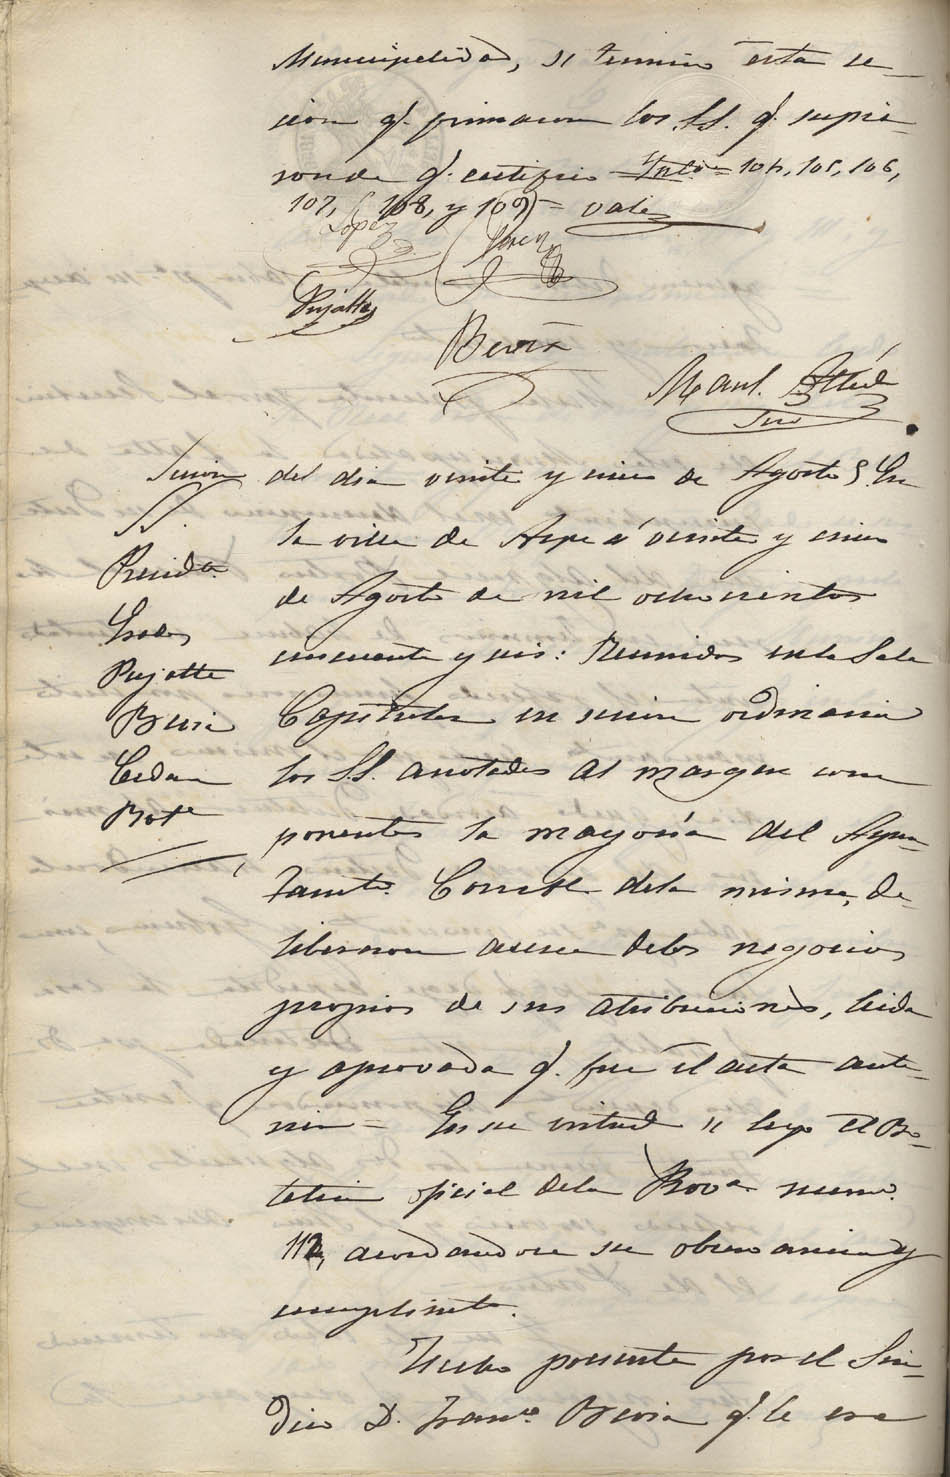 Municipalidad, se terminó esta se-
sion q.e firmaron los SS. q.e supie-
ron de q.e certifico = 104, 105, 106,
107, 108, y 109 = vale
Lopez
Pujalte
Bevia
Manl.
Srio
Sesion del dia veinte y cinco de Agosto En
la villa de Aspe á veinte y cinco
de Agosto de mil ochocientos
cincuenta y seis: Reunidos en la Sala
Capitular en sesion ordinaria
los SS. anotados al margen com
ponentes la mayoría del Ayun-
tamto. Constl. dela misma, de-
liberaron acerca delos negocios
propios de sus atribuciones, leida
y aprovada q.e fué el acta ante-
rior = En su virtud se leyo el Bo-
letin oficial dela Prova. numo.
112, acordandose su observancia y
cumplimto.
Hecho presente por el Sin-
dico D. Franco. Bevia q.e le era
SS.
Presidte.
Prades
Pujalte
Bevia
Cerdan
Bote